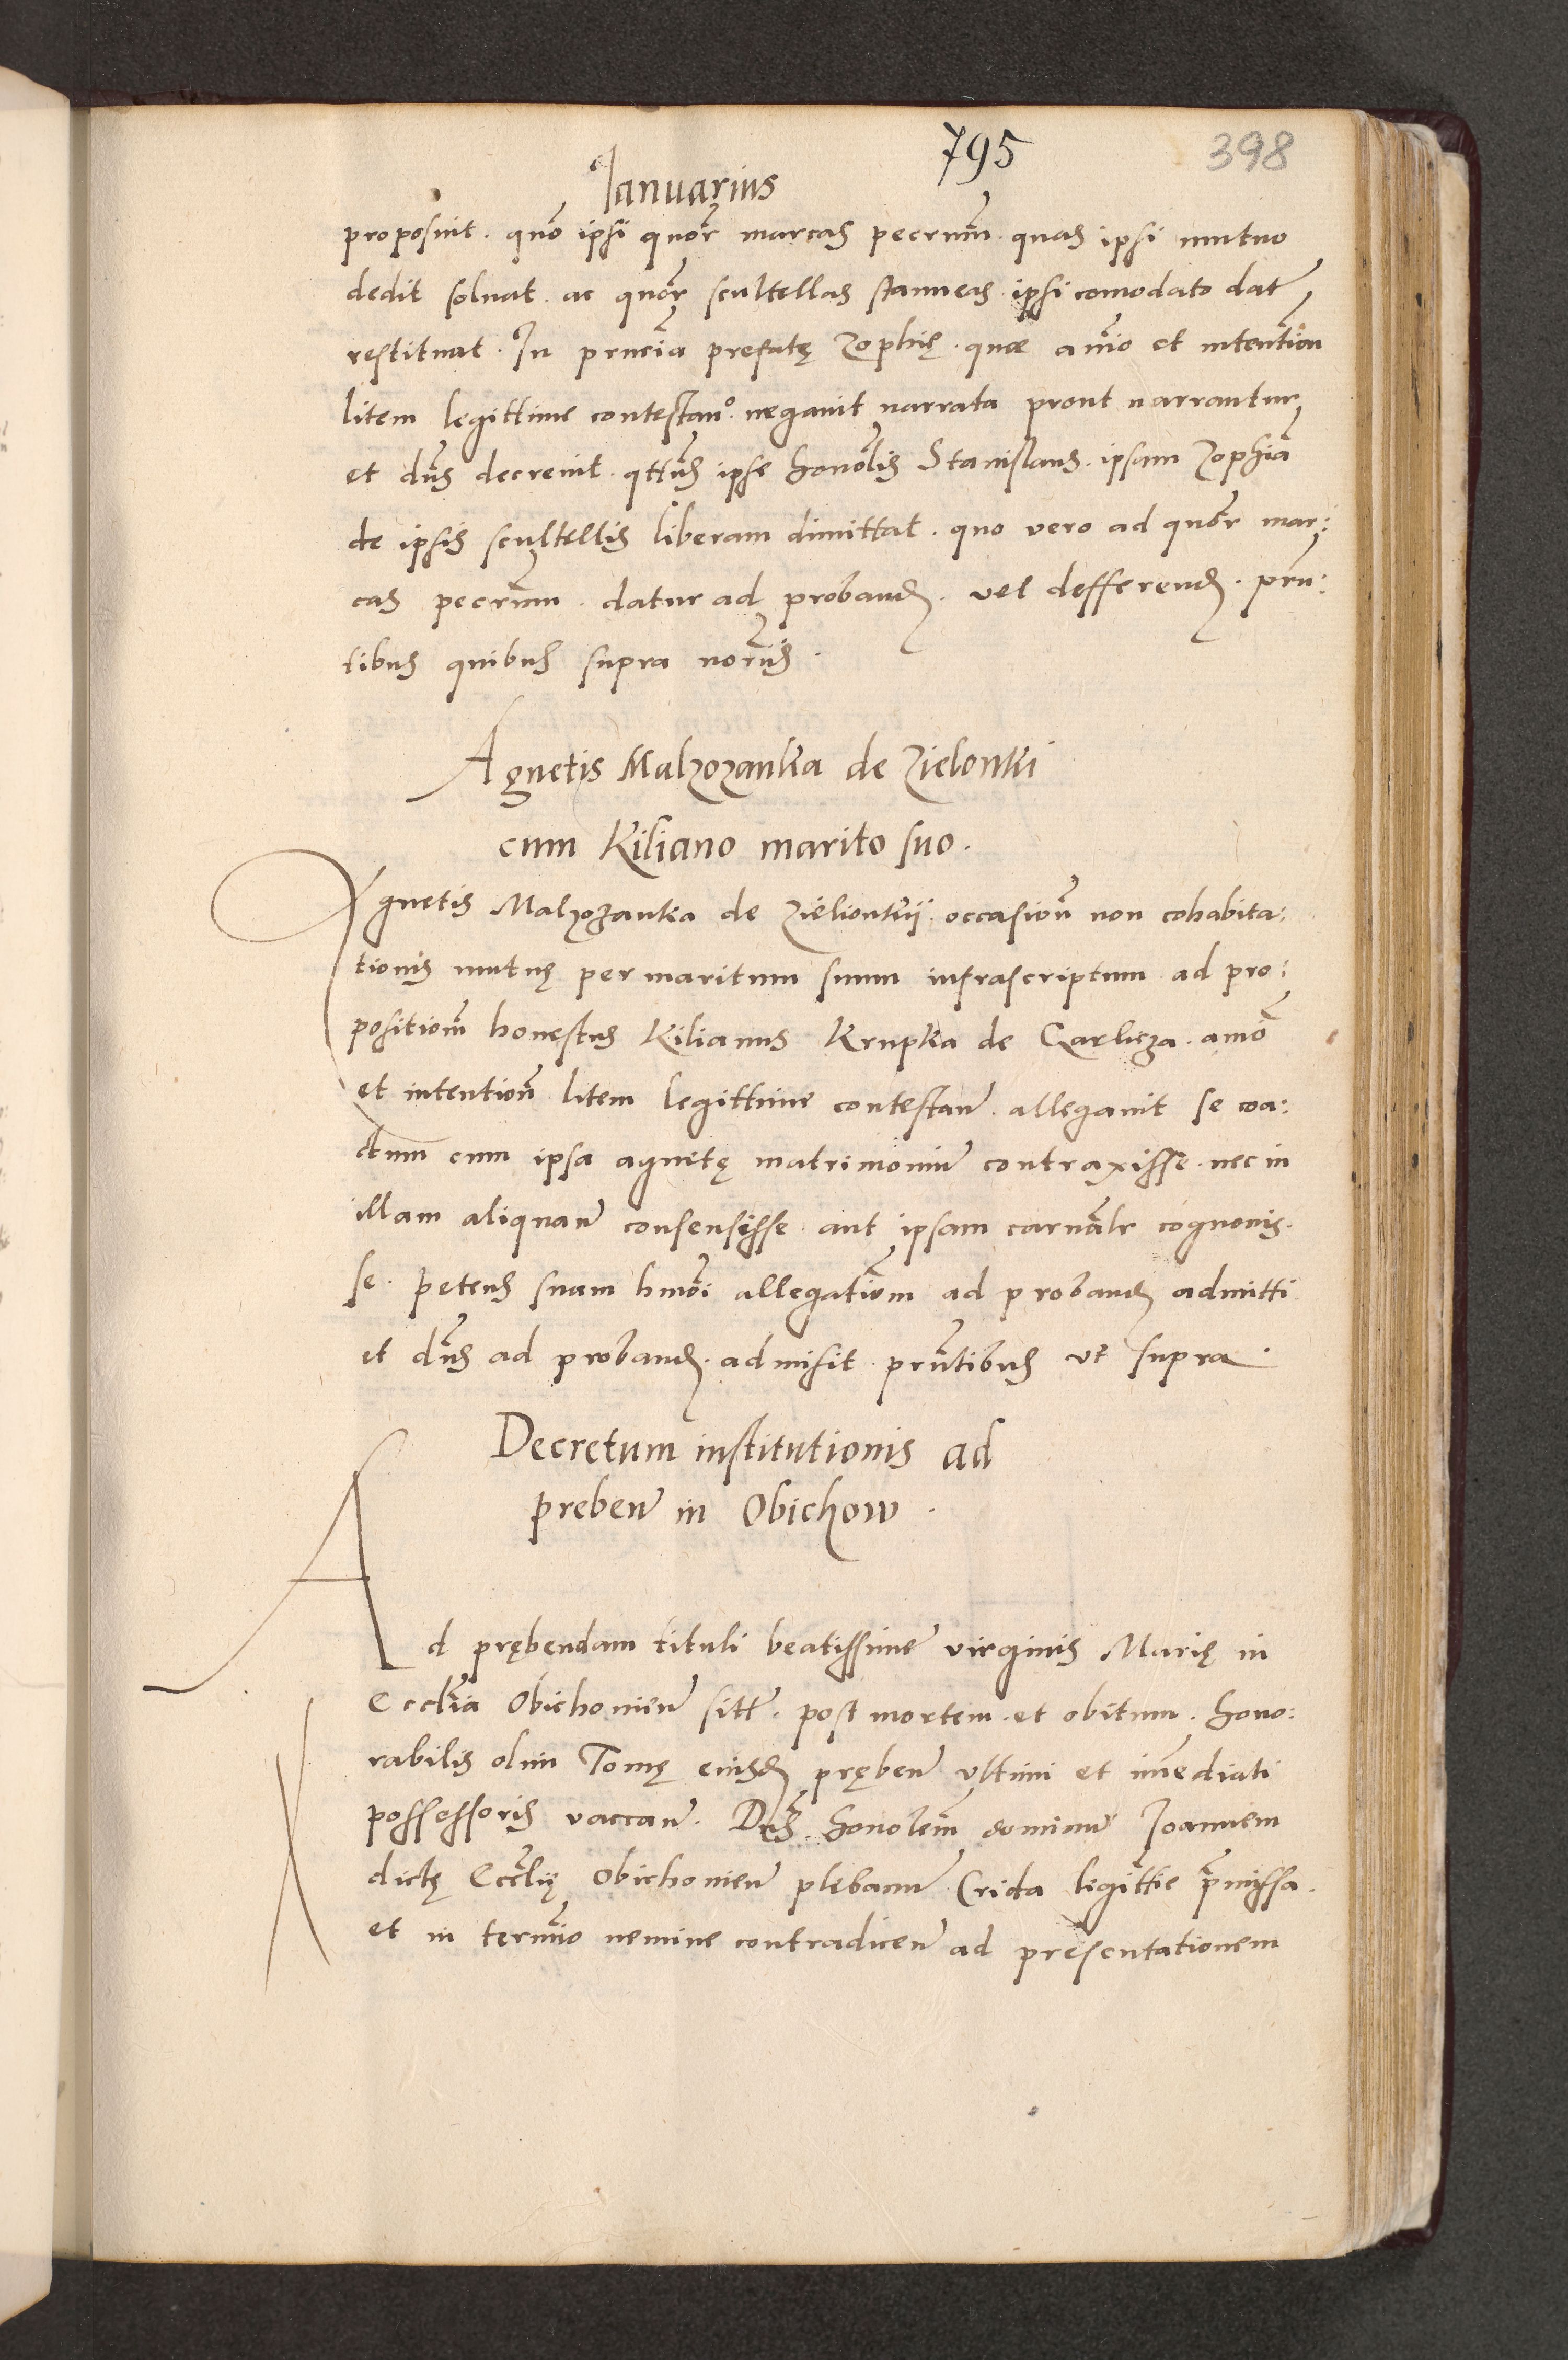 795
398
Januarius
proposuit. quō ipsi quōr marcas pecrum̄. quas ipsi mutuo
dedit soluat. ac quōr scultellas stanneas ipsi comodato dat̄
restituat. In prn̄cia prefatę Zophię. quae anīo et intention̄
litem legittime contestan̄o. negauit narrata prout narrantur
et dn̄s decreuit. qtn̄s ipse honōlis Stanislaus. ipsam Zophiā
de ipsis scultellis liberam dimittat. quo vero ad quōr mar:
cas pecrum̄. datur ad proband. vel defferend. prn̄:
tibus quibus supra nor̄ys.
Agnetis Malzozanka de Zielonki
cum Kiliano marito suo.
Agnetis Malzozanka de Zielionkij. occasion̄ non cohabita:
tionis mutuę per maritum suum infrascriptum ad pro:
position̄ honestus Kilianus Krupka de Garlicza. anīo
et intention̄ litem legittime contestan̄. allegauit se coa:
ctum cum ipsa agnetę matrimoniū contraxisse. nec in
illam aliquan̄ consensisse aut ipsam carnālr cognouis.
se. petens suam hmōi allegatiōem ad proband admitti
et dn̄s ad proband. admisit prn̄tibus vt supra.
Decretum institutionis ad
preben̄ in Obichow.
Ad prębendam tituli beatissime virginis Marię in
Eccl̄ia Obichouien̄ sitt̄. post mortem. et obitum. Hono:
rabilis olim Tomę eiusd pręben̄ vltimi et imediati
possessoris vaccan̄. Dn̄s. Honolem̄ dominū Joannem
dictę Eccl̄ię Obichouien̄ plebanū Crida ligittīe p̄missa.
et in termīo nemine contradicen̄ ad presentationem